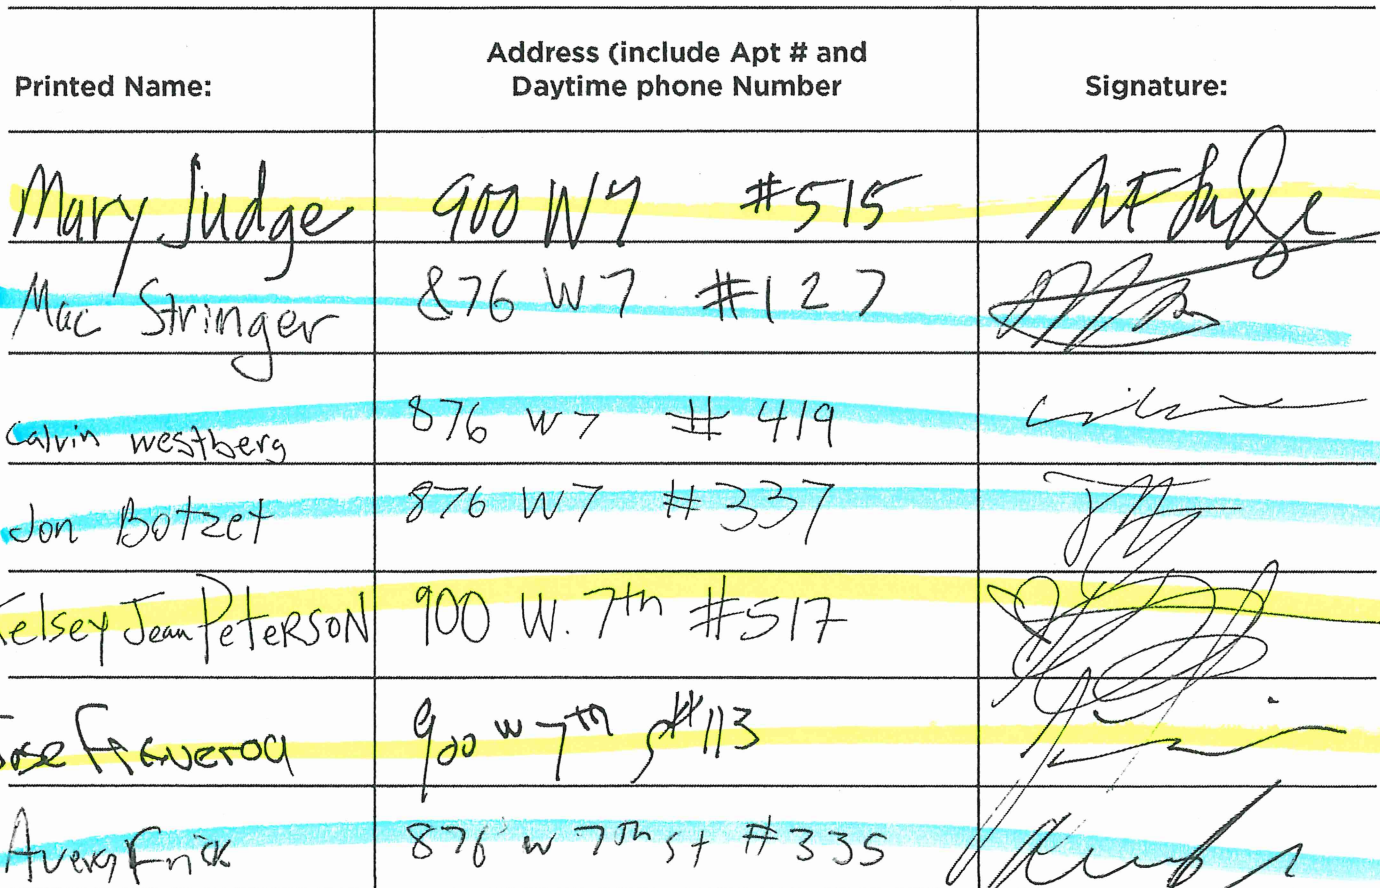 Address (include Apt # and
Printed Name: Daytime phone Number Signature:
Mary Judge 900 W 7 #515
Mac Stringer 876 W 7 #127
Calvin westberg 876 W 7 # 419
Jon Botzet 876 W 7 #337
Kelsey Jean PeteRSoN 900 W. 7th #517
Jose Figueroa 900 w 7th #113
Avery Frick 876 w 7th st #335